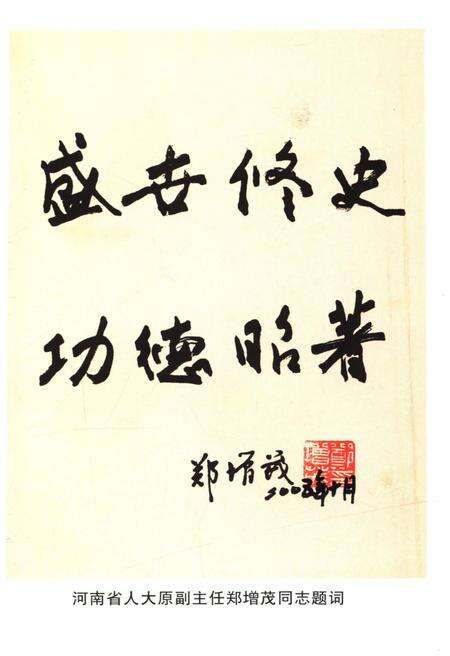 盛世修史
功德昭著
郑增茂
二00五年十月
河南省人大原副主任郑增茂同志题词